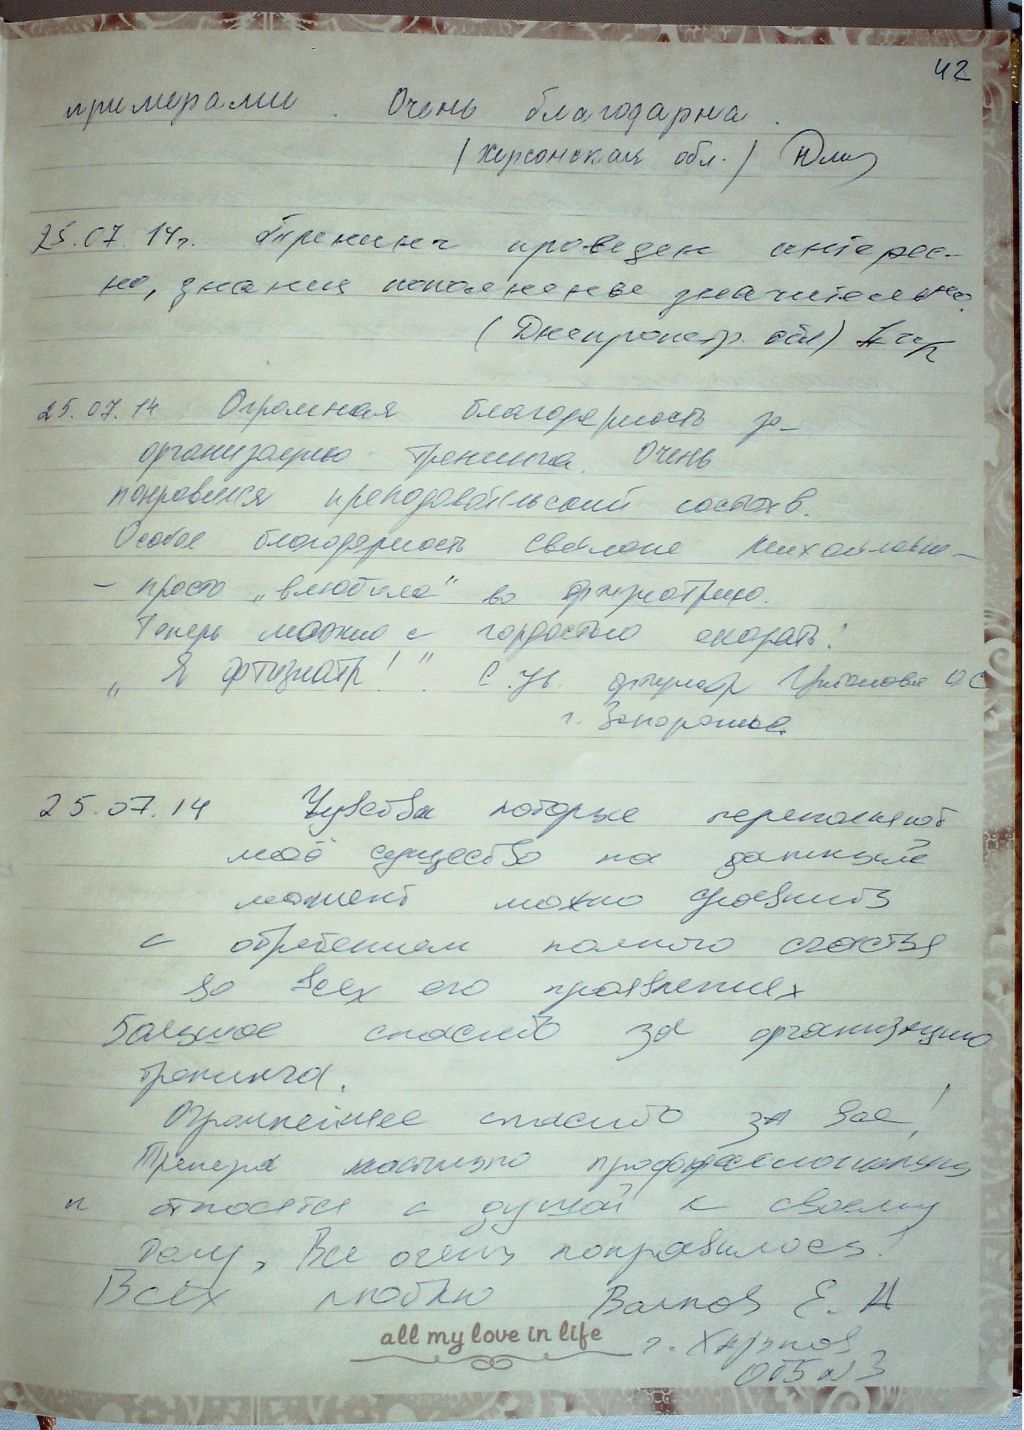 42
примерами. Очень благодарна.
(Херсонская обл.)
25.07.14г. Тренинг проведен интерес-
но, знания пополнены значительно.
(Днепропетр. обл)
25.07.14 Огромная благодарность за
организацию тренинга. Очень
понравился преподавательский состав.
Особая благодарность Светлане Михайловне -
- просто „влюбила" во фтизиатрию.
Теперь можно с гордостью сказать:
„Я фтизиатр!". С ув. фтизиатр ОС
г. Запорожье.
25.07.14 Чувства которые переполняют
моё существо на данный
момент можно сравнить
с обретением полного счастья
во всех его проявлениях
Большое спасибо за организацию
тренинга.
Огромнейшее спасибо за все!
Тренера настоящие профессионалы
и относятся с душой к своему
делу, Все очень понравилось!
Всех люблю Е. Н
all my love in life
г. Харьков
ОТБ №3